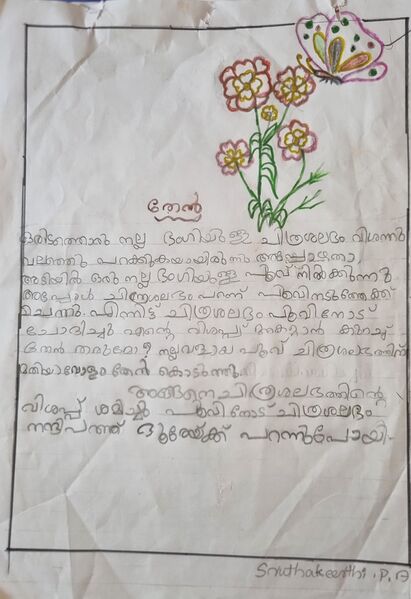 തേൻ
ഒരിടത്തൊരു നല്ല ഭംഗിയുള്ള ചിത്രശലഭം വിശന്നു
വലഞ്ഞു പറക്കുകയായിരുന്നു
അതിൽ ഒരു നല്ല ഭംഗിയുള്ള പൂവ് നിൽക്കുന്നു
അപ്പോൾ ചിത്രശലഭം പറന്ന് പൂവിനടുത്തേക്ക്
ചെന്നു. എന്നിട്ട് ചിത്രശലഭം പൂവിനോട്
ചോദിച്ചു എന്റെ വിശപ്പ് മാറ്റാൻ കുറച്ച്
തേൻ തരുമോ? നല്ലവളായ പൂവ് ചിത്രശലഭത്തിന്
മതിയാവോളം തേൻ കൊടുത്തു.
അങ്ങനെ ചിത്രശലഭത്തിന്റെ
വിശപ്പ് ശമിച്ചു പൂവിനോട് ചിത്രശലഭം
നന്ദിപറഞ്ഞ് ദൂരേയ്ക്ക് പറന്നുപോയി.
Sruthakeerthi . P. A